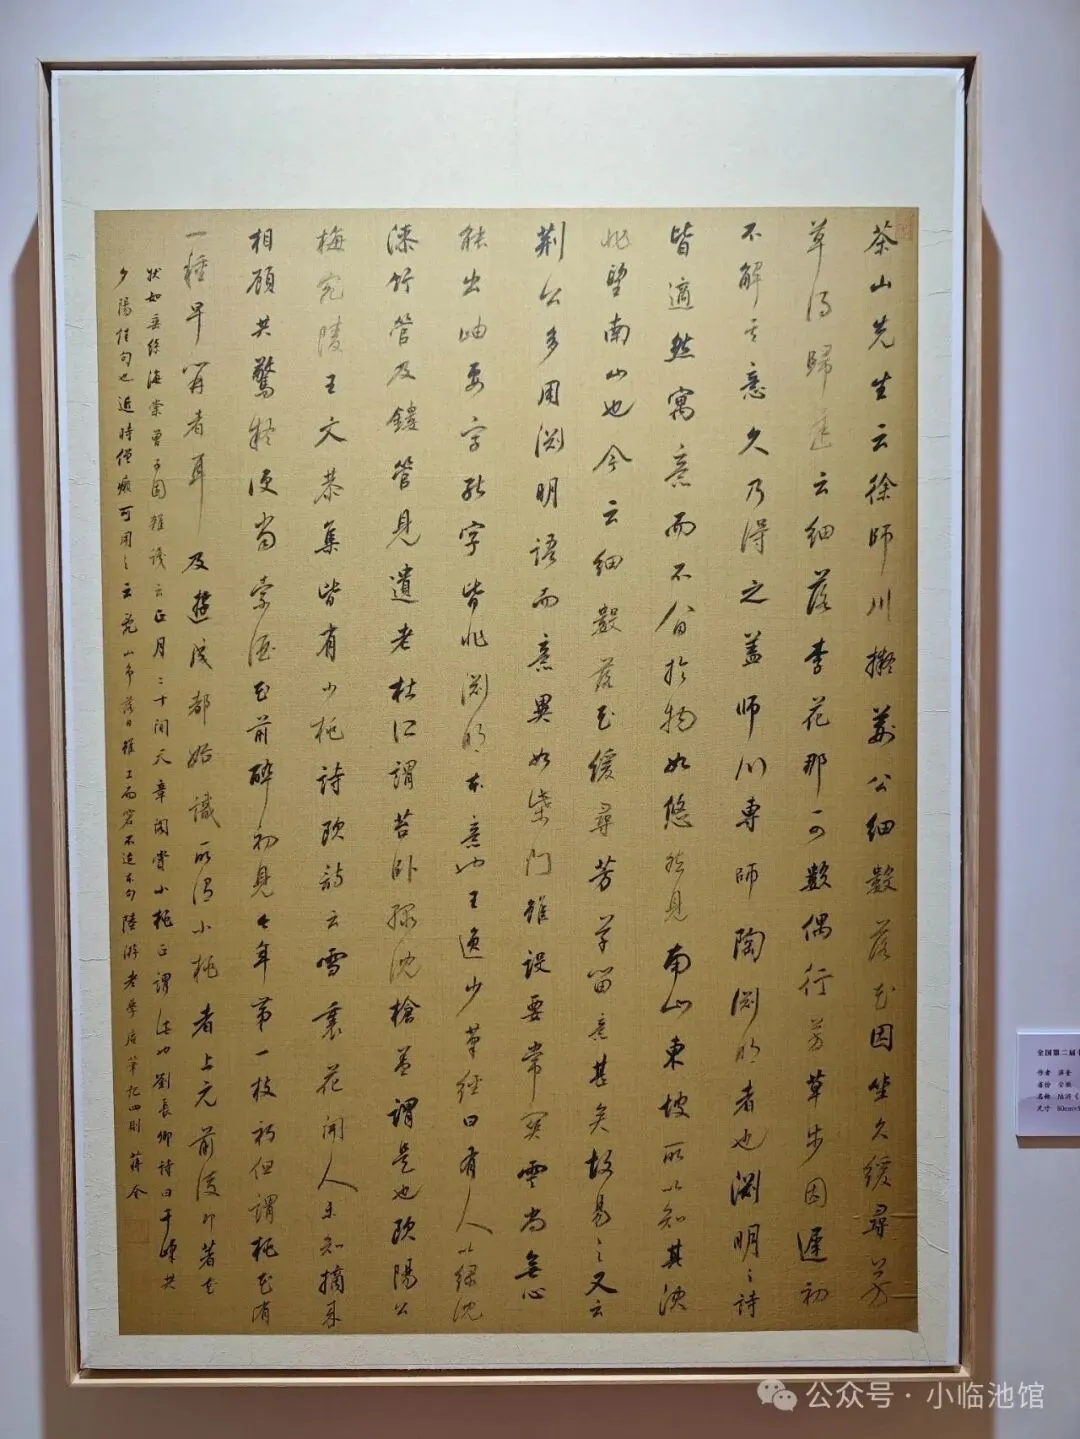 茶山先生云徐师川擬荆公细數落花因坐久缓尋芳
草得歸遲云细落李花那可數偶行芳草步因遲初
不解其意久乃得之盖師川専師陶渊明者也渊明之詩
皆適然寓意而不留於物如悠然見南山東坡所以知其决
非望南山也今云细數落花缓尋芳草留意甚矣故易之又云
荆公多用渊明語而意異如柴門雖設要常関雲尚無心
能出岫要字能字皆非渊明本意也王逸少筆經曰有人以緑沈
漆竹管及鏤管見遺老杜江謂苔卧緑沈槍盖謂是也欧陽公
梅宛陵王文恭集皆有小桃詩欧詩云雪裏花開人未知摘来
相顧共驚疑便当索酒花前醉初見今年第一枝初但謂桃花有
一種早開者耳及遊成都始識所谓小桃者上元前後即著花
状如垂絲海棠曾子固雜識云正月二十间天章閣賞小桃正謂此也劉長卿詩曰千峰共
夕陽佳句也近時僧癩可用之云乱山争落日雖工而窘不迨本句陸游老學庵筆記四則蒋全
全国第二届
作者
省份 安徽
名称 陆游《
尺寸
公众号·小临池馆